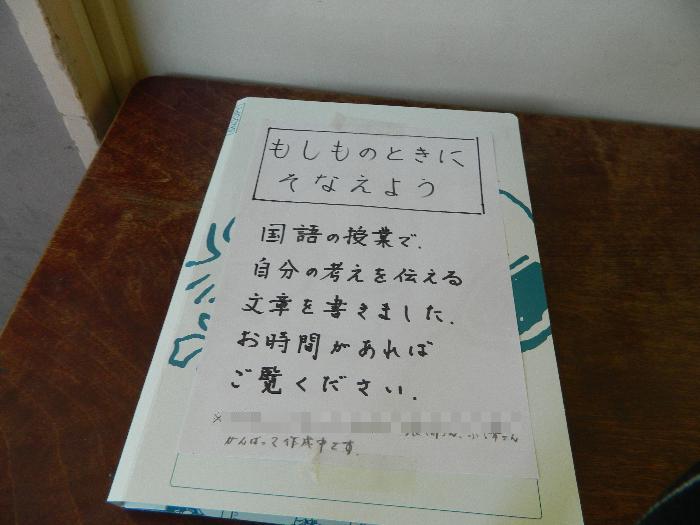 もしものときに
そなえよう
国語の授業で、
自分の考えを伝える
文章を書きました。
お時間があれば
ご覧ください。
※
がんばって作成中です。